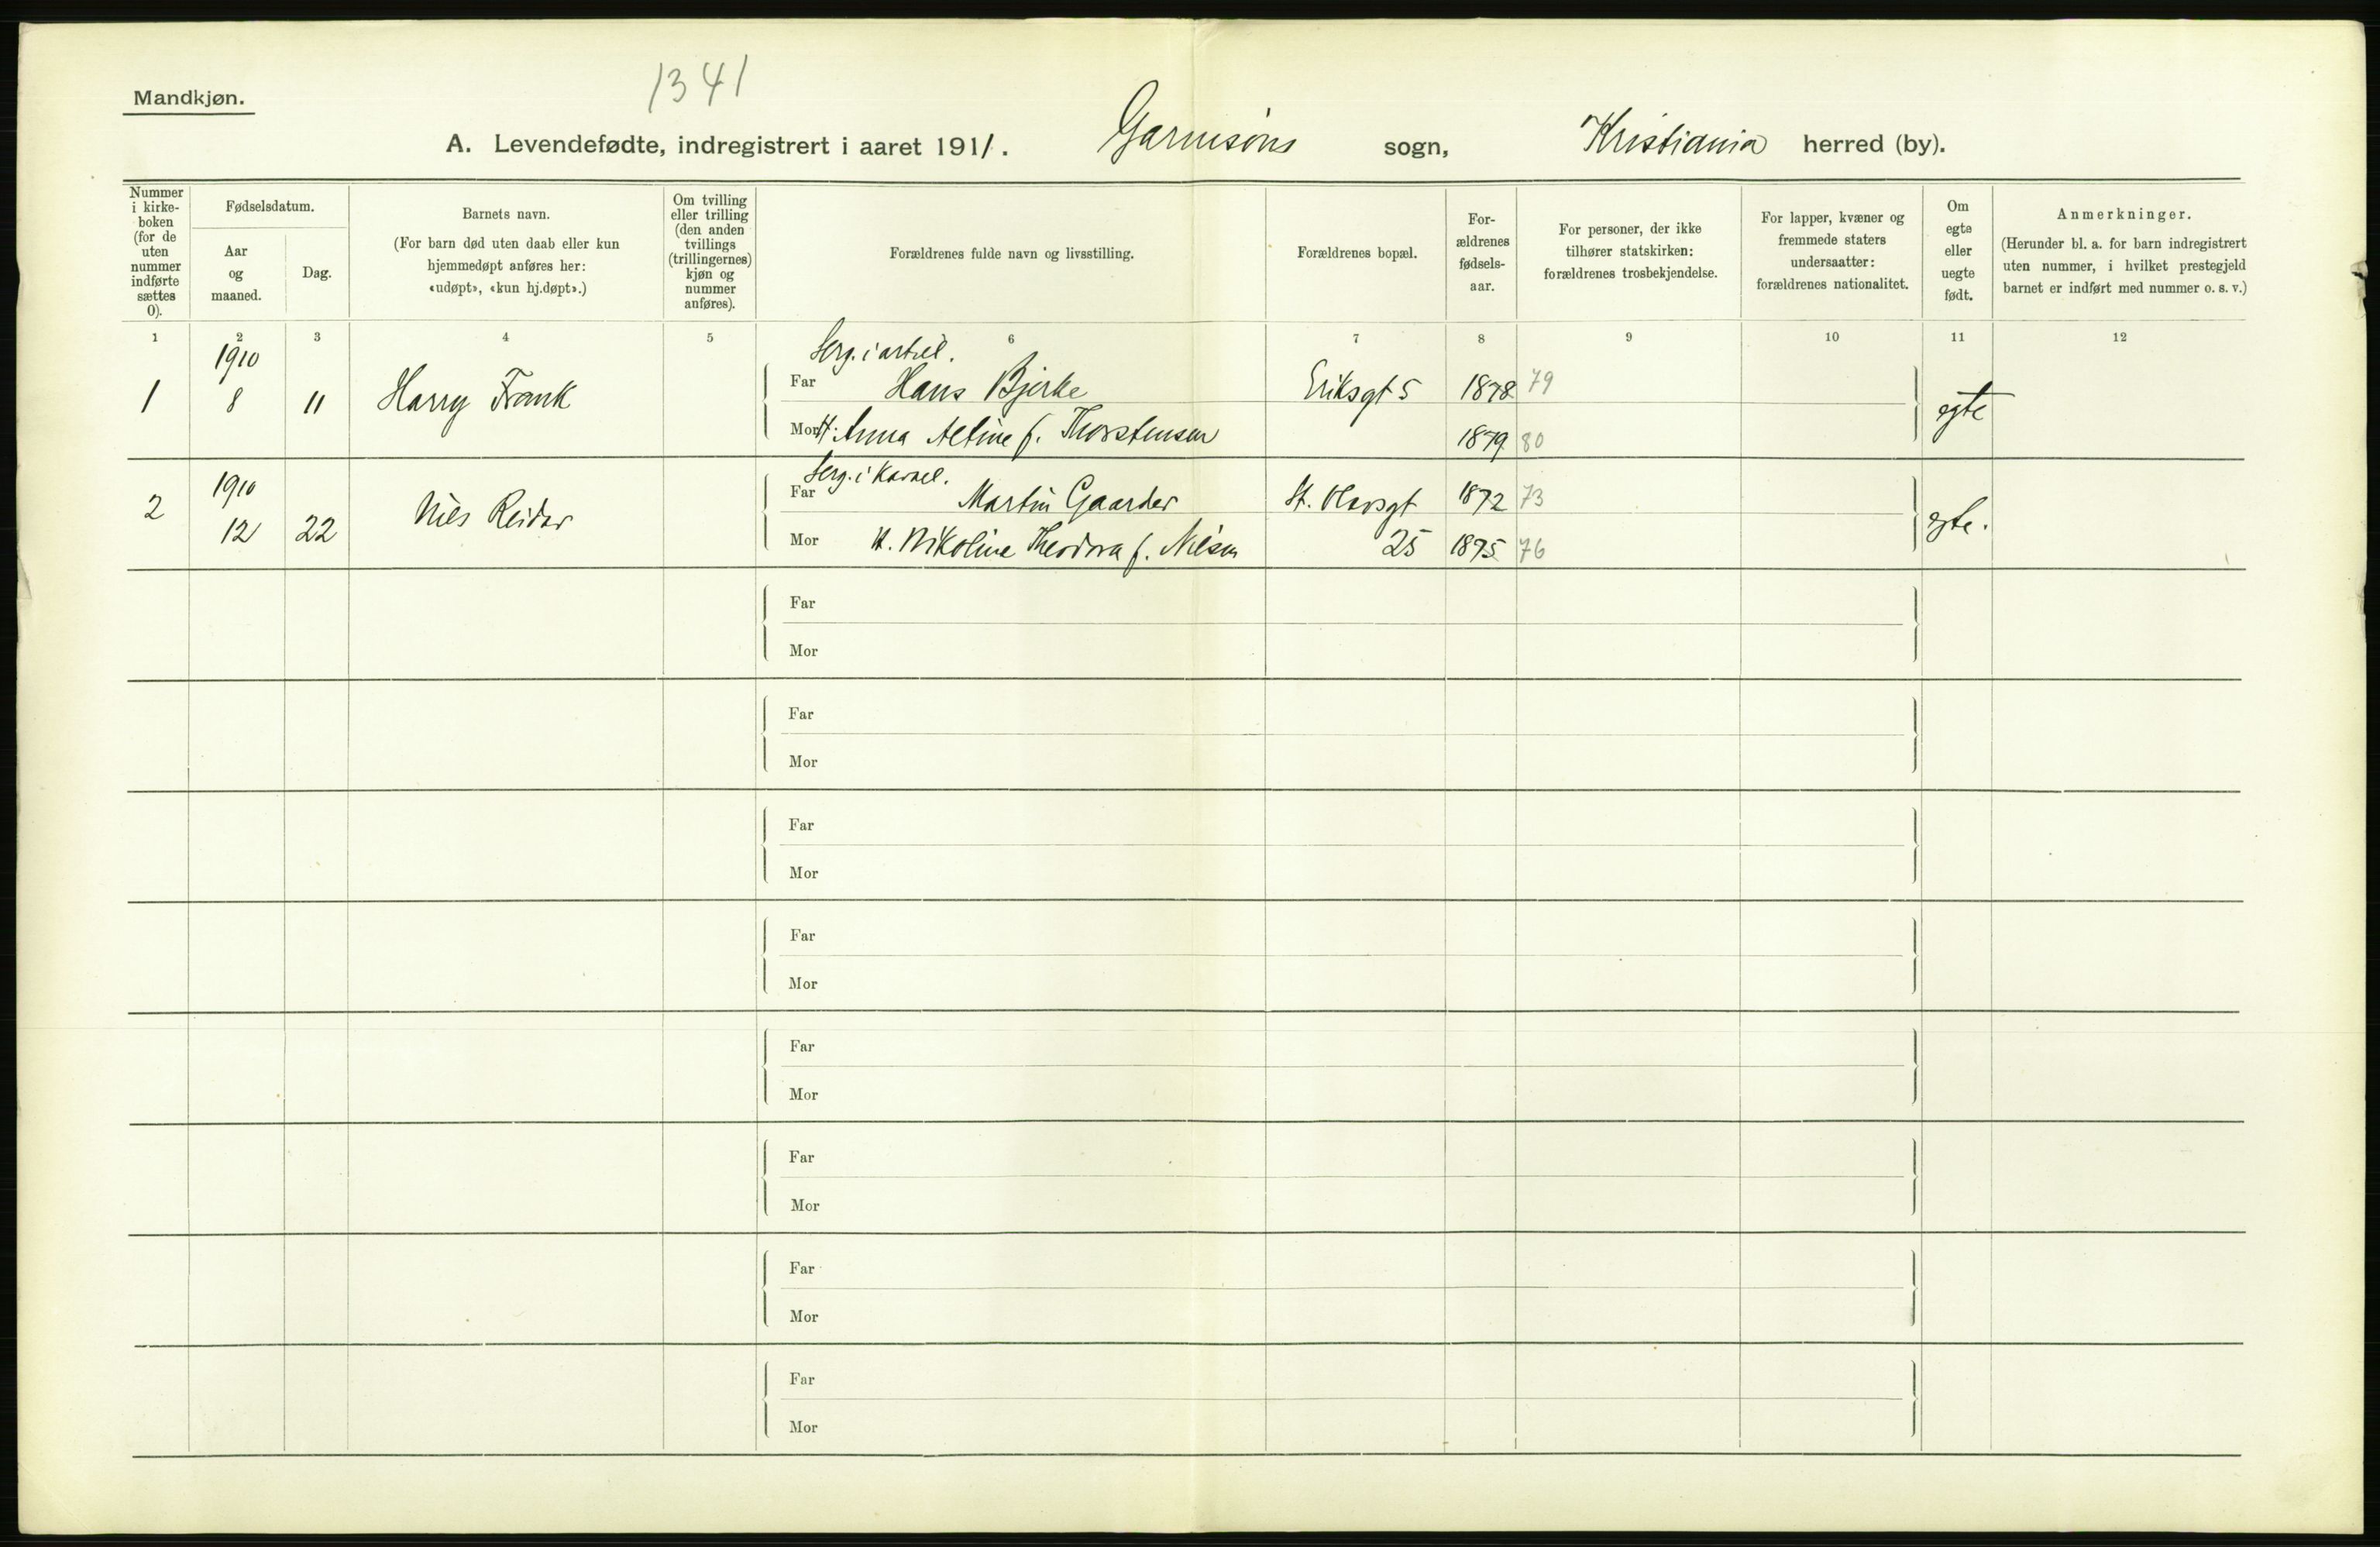 1341
Mandkjøn.
A. Levendefødte, indregistrert i aaret 1911. Garnisons sogn, Kristiania herred (by).
Nummer i kirke-boken (for de uten nummer indførte sættes 0).
Fødselsdatum.
Aar og maaned.
Dag.
Barnets navn.
(For barn død uten daab eller kun hjemmedøpt anføres her: «udøpt», «kun hj.døpt».)
Om tvilling eller trilling (den anden tvillings (trillingernes) kjøn og nummer anføres).
Forældrenes fulde navn og livsstilling.
Forældrenes bopæl.
For-ældrenes fødsels-aar.
For personer, der ikke tilhører statskirken: forældrenes trosbekjendelse.
For lapper, kvæner og fremmede staters undersaatter: forældrenes nationalitet.
Om egte eller uegte født.
Anmerkninger.
(Herunder bl. a. for barn indregistrert uten nummer, i hvilket prestegjeld barnet er indført med nummer o. s. v.)
1 2 3 4 5 6 7 8 9 10 11 12
1910 Serg. i artil.
1 8 11 Harry Frank Far Hans Bjerke Eriksgt 5 1878 79 egte
Mor H. Anna Aline f. Thorstensen 1879 80
1910 Serg. i Kaval.
2 12 22 Nils Reidar Far Martin Gaarder St. Olavsgt 1872 73 egte.
Mor H. Nikoline Theodora f. Nilsen 25 1875 76
Far
Mor
Far
Mor
Far
Mor
Far
Mor
Far
Mor
Far
Mor
Far
Mor
Far
Mor